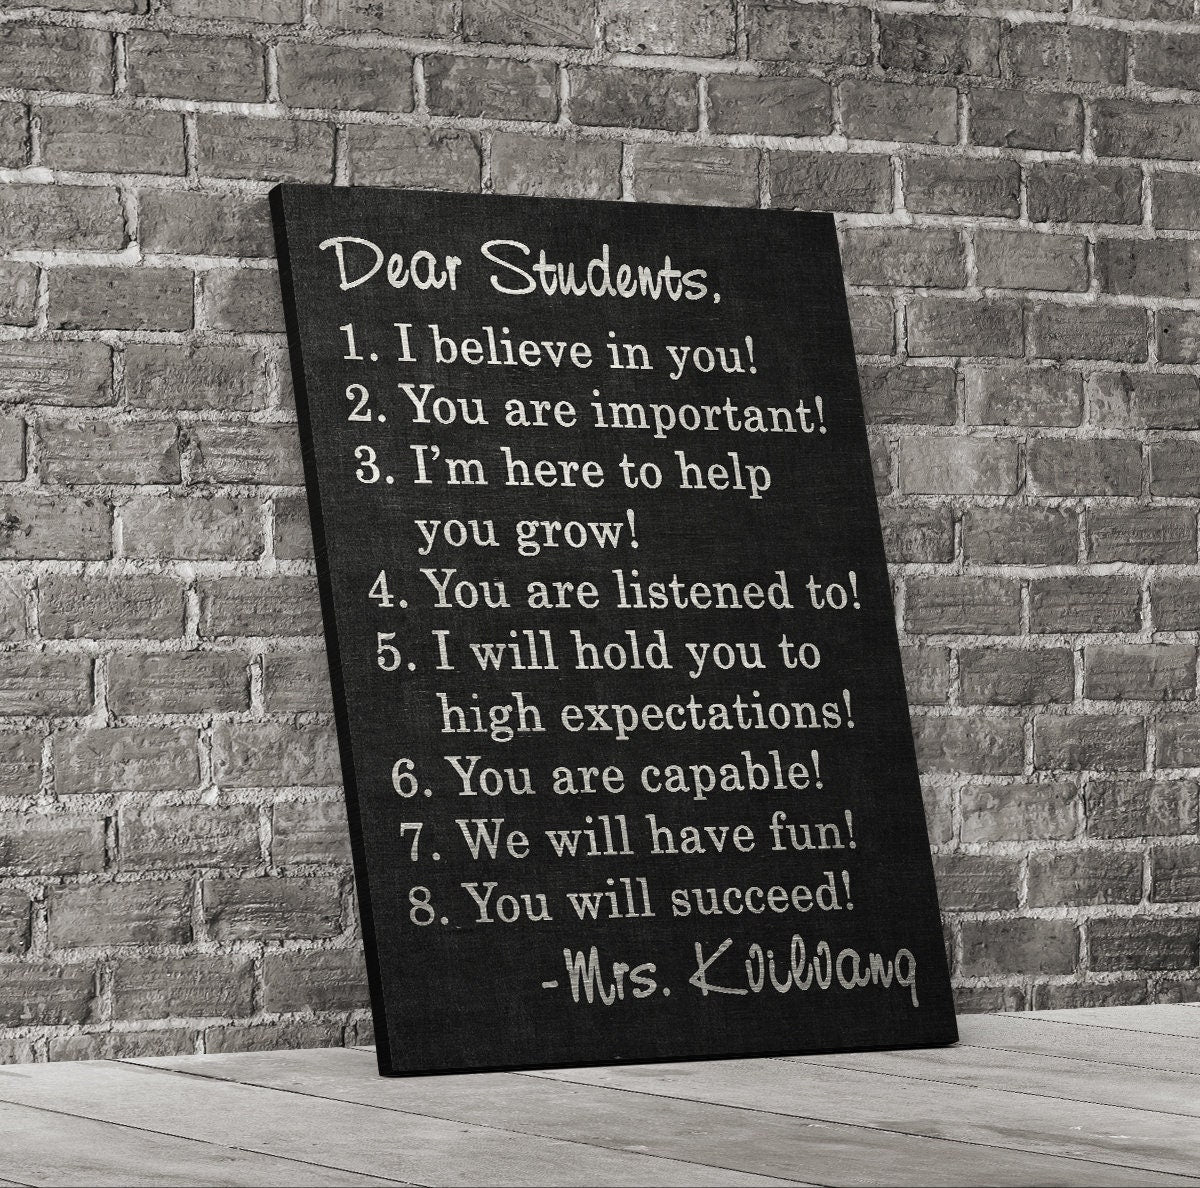 Dear Students,
1. I believe in you!
2. You are important!
3. I'm here to help
you grow!
4. You are listened to!
5. I will hold you to
high expectations!
6. You are capable!
7. We will have fun!
8. You will succeed!
-Mrs. Kvilvang